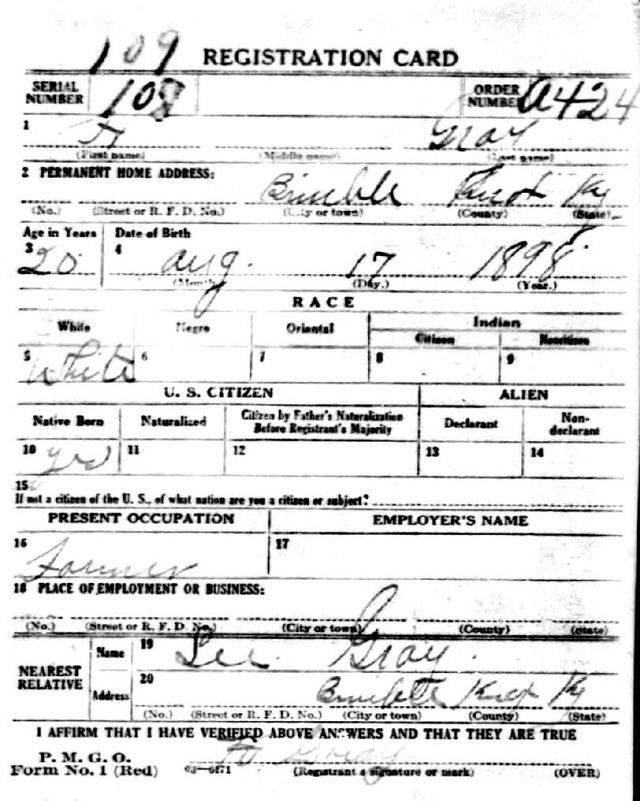 109
REGISTRATION CARD
SERIAL NUMBER 108 ORDER NUMBER A424
1 Gray
(First name) (Middle name) (Last name)
2 PERMANENT HOME ADDRESS:
Bimble Knox Ky
(No.) (Street or R. F. D. No.) (City or town) (County) (State)
Age in Years Date of Birth
3 20 4 Aug. 17 1898
(Month) (Day.) (Year.)
RACE
White Negro Oriental Indian
Citizen Noncitizen
5 White 6 7 8 9
U. S. CITIZEN ALIEN
Native Born Naturalized Citizen by Father's Naturalization Before Registrant's Majority Declarant Non-declarant
10 yes 11 12 13 14
15
If not a citizen of the U. S., of what nation are you a citizen or subject?
PRESENT OCCUPATION EMPLOYER'S NAME
16 Farmer 17
18 PLACE OF EMPLOYMENT OR BUSINESS:
(No.) (Street or R. F. D. No.) (City or town) (County) (State)
NEAREST RELATIVE
Name 19 Lee Gray
Address 20 Knox Ky
(No.) (Street or R. F. D. No.) (City or town) (County) (State)
I AFFIRM THAT I HAVE VERIFIED ABOVE ANSWERS AND THAT THEY ARE TRUE
P. M. G. O.
Form No. 1 (Red) Gray
(Registrant's signature or mark) (OVER)